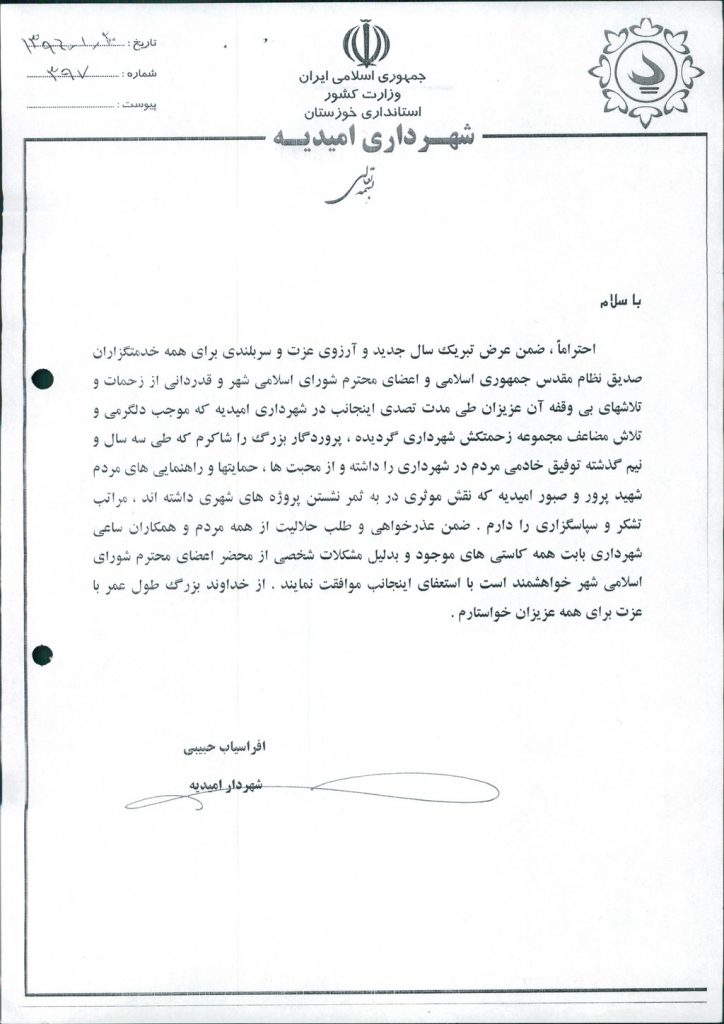 تاریخ : ۱۳۹۶/۱/۲۰
شماره : ۳۹۷
پیوست :
جمهوری اسلامی ایران
وزارت کشور
استانداری خوزستان
شهرداری امیدیه
بسمه تعالی
با سلام
احتراماً ، ضمن عرض تبریک سال جدید و آرزوی عزت و سربلندی برای همه خدمتگزاران
صدیق نظام مقدس جمهوری اسلامی و اعضای محترم شورای اسلامی شهر و قدردانی از زحمات و
تلاشهای بی وقفه آن عزیزان طی مدت تصدی اینجانب در شهرداری امیدیه که موجب دلگرمی و
تلاش مضاعف مجموعه زحمتکش شهرداری گردیده ، پروردگار بزرگ را شاکرم که طی سه سال و
نیم گذشته توفیق خادمی مردم در شهرداری را داشته و از محبت ها ، حمایتها و راهنمایی های مردم
شهید پرور و صبور امیدیه که نقش موثری در به ثمر نشستن پروژه های شهری داشته اند ، مراتب
تشکر و سپاسگزاری را دارم . ضمن عذرخواهی و طلب حلالیت از همه مردم و همکاران ساعی
شهرداری بابت همه کاستی های موجود و بدلیل مشکلات شخصی از محضر اعضای محترم شورای
اسلامی شهر خواهشمند است با استعفای اینجانب موافقت نمایند . از خداوند بزرگ طول عمر با
عزت برای همه عزیزان خواستارم .
افراسیاب حبیبی
شهردار امیدیه